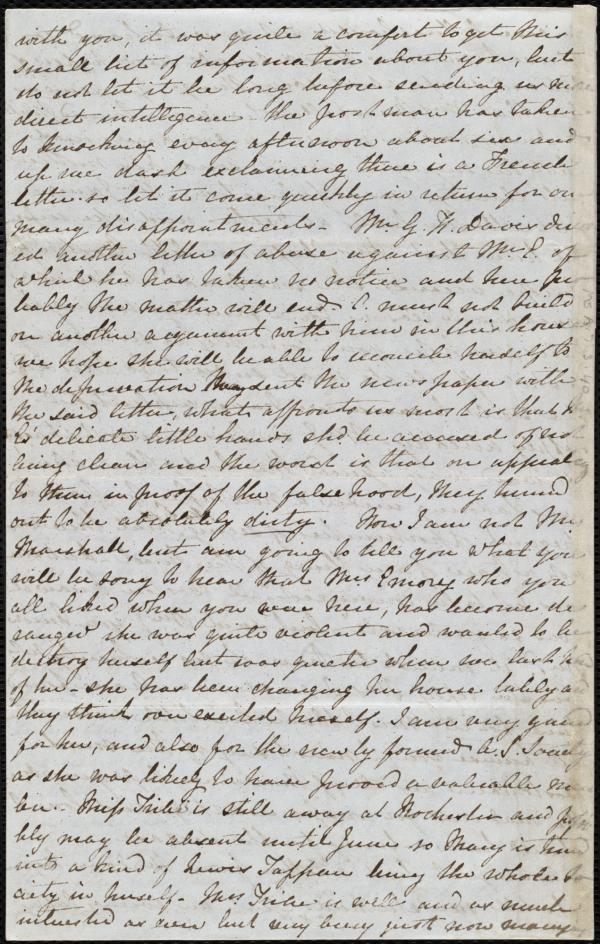 with you, it was quite a comfort to get this
small bit of information about you, but
do not let it be long before sending us more
direct intelligence. The post man has taken
to knocking every afternoon about six and
up we dash exclaiming there is a French
letter so let it come quickly in return for our
many disappointments - Mr G. F. Davis
ed another letter of abuse against Mr. E. of
which he has taken no notice and here pro
bably the matter will end. E. must not build
on another argument with him in this house
we hope she will be able to reconcile herself to
the deprivation They sent the newspaper with
the said letter, what affronts us most is that
E's delicate little hands shd be accused of not
being clean and the worst is that on appeal
to them in proof of the falsehood, they turned
out to be absolutely dirty. Now I am not Mr
Marshall, but am going to tell you what you
will be sorry to hear that Mrs Emory who you
all liked when you were here, has become de
ranged she was quite violent and wanted to
destroy herself but was quieter when we last
of her - she has been changing her house lately and
they think over excited herself. I am very
for her, and also for the newly formed A. S. Society
as she was likely to have proved a valuable mem
ber - Miss Tribe is still away at Rochester and
bly may be absent until June so Mary is
into a kind of Lewis Tappan being the whole So
ciety in herself - Mrs Tribe is well and as much
interested as ever but very busy just now many